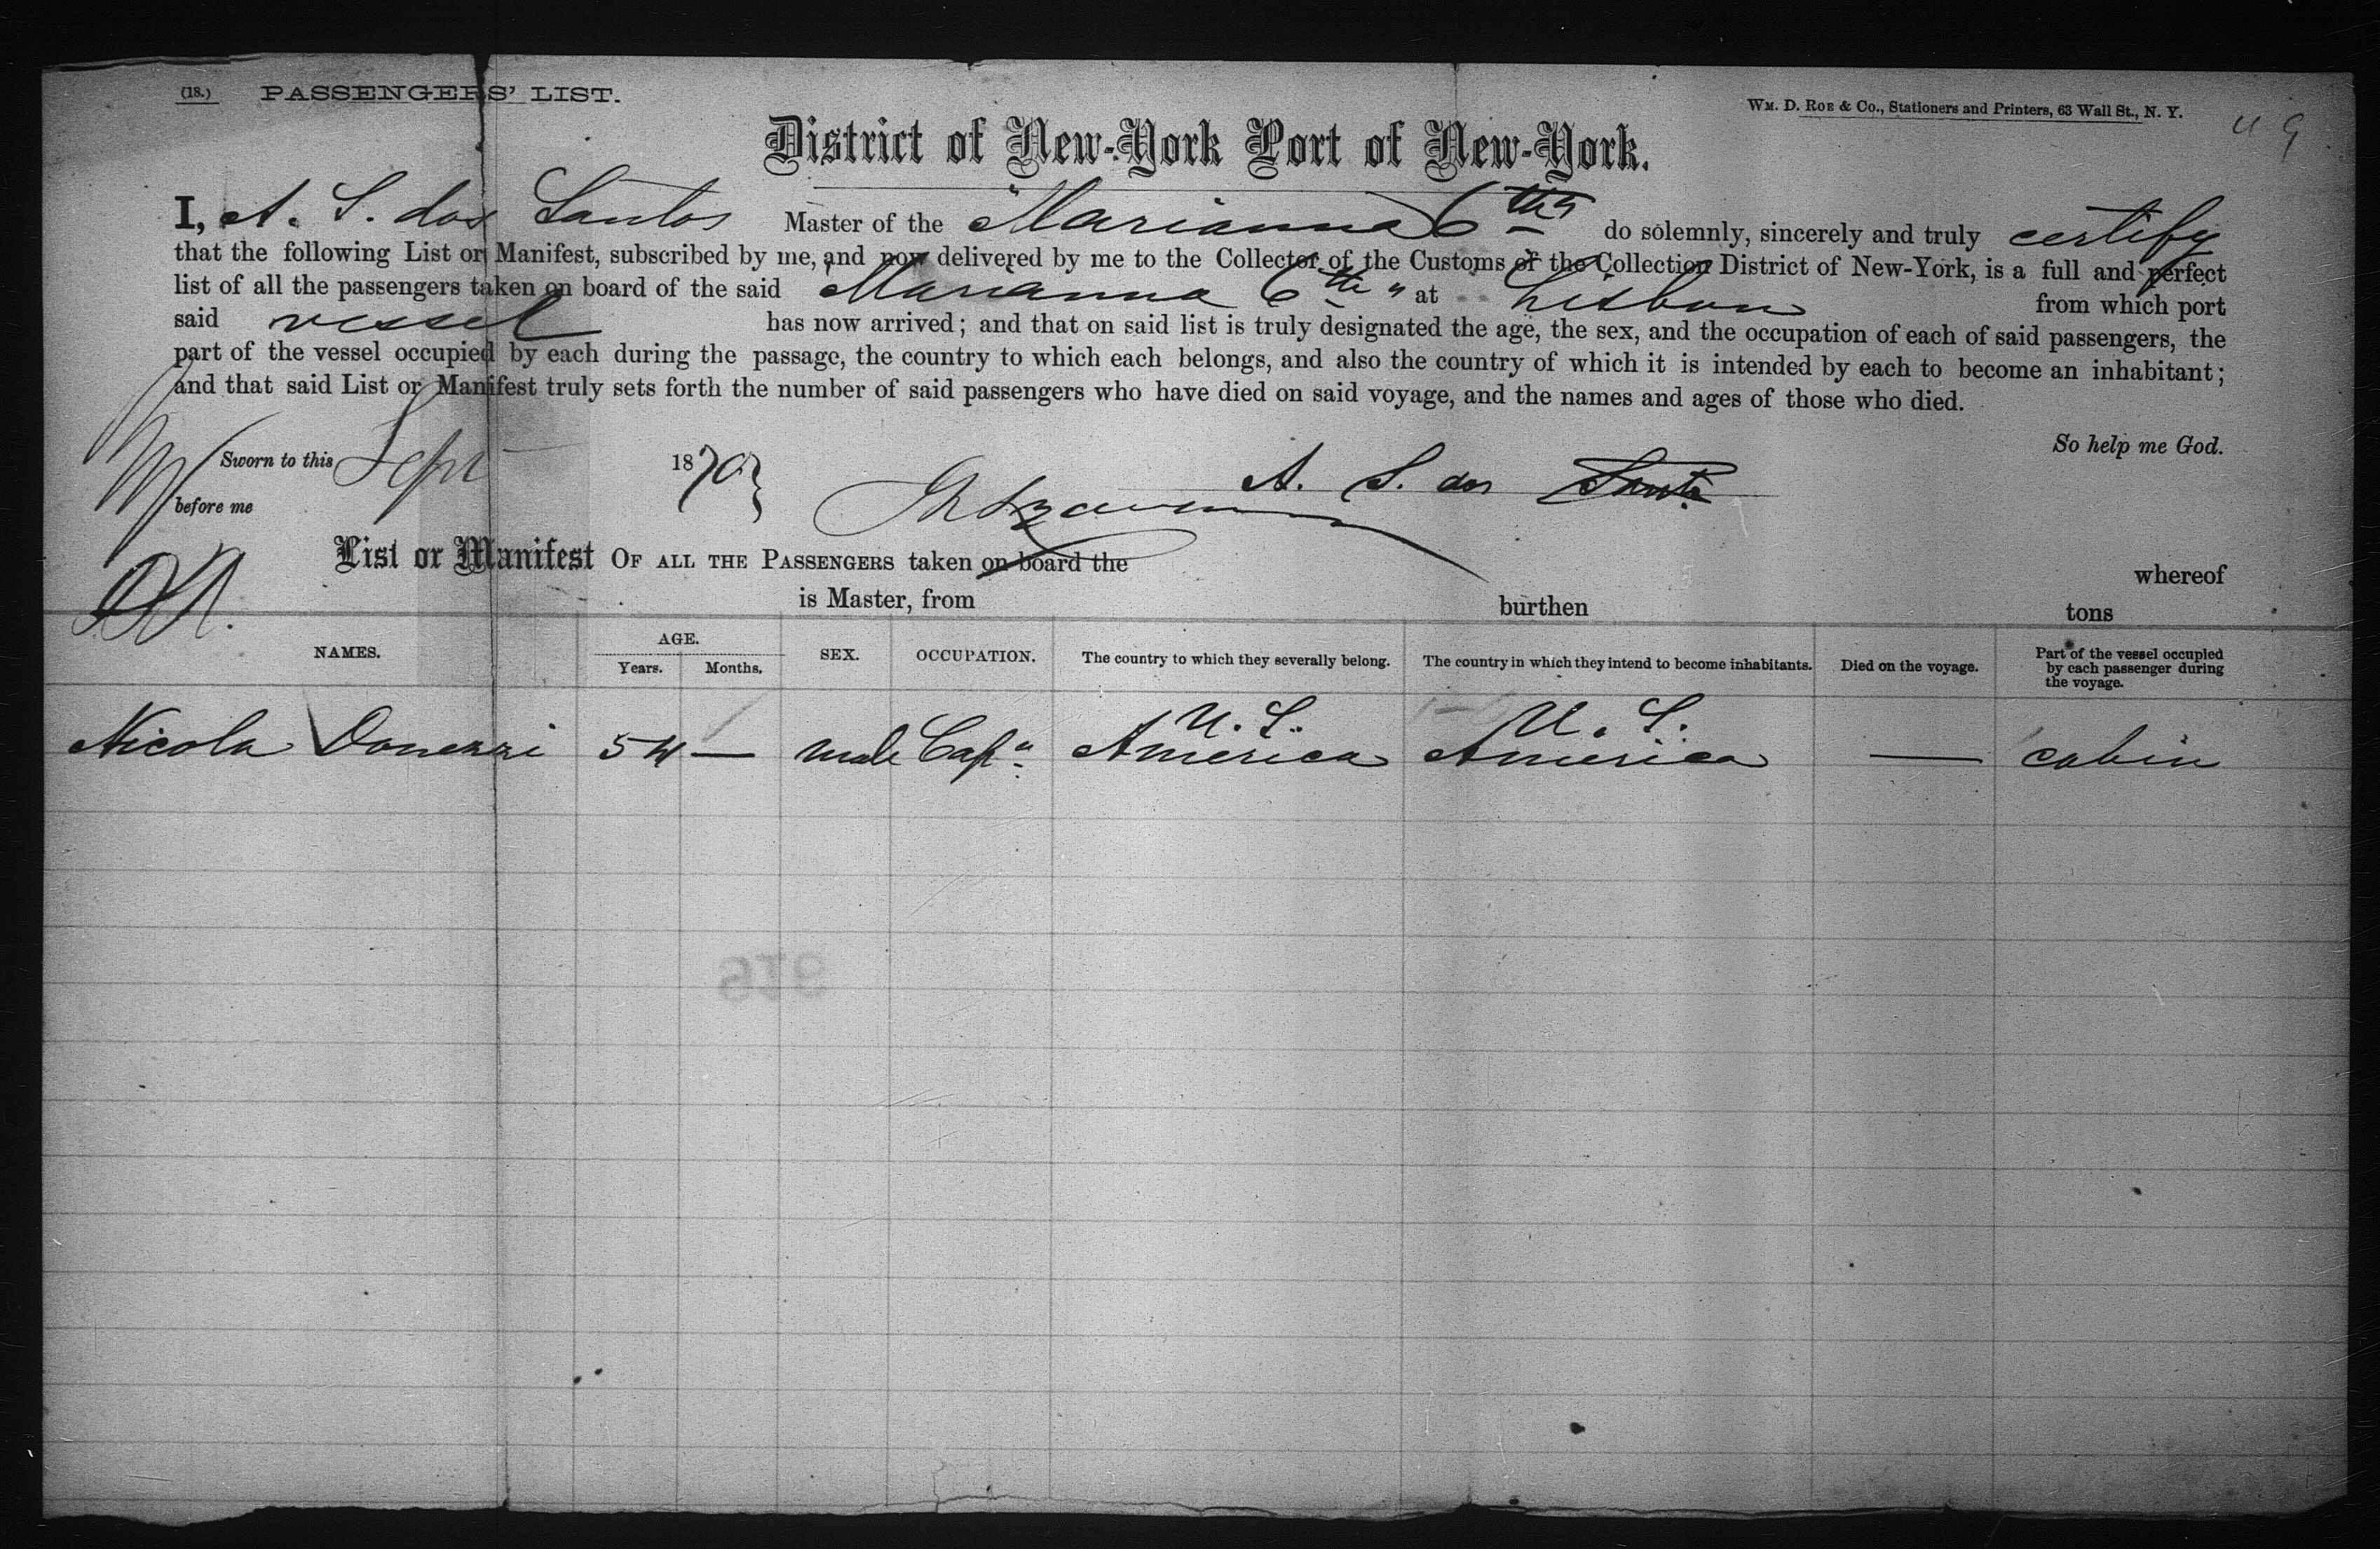 (18.) PASSENGERS' LIST.
WM. D. ROE & CO., Stationers and Printers, 63 Wall St., N. Y.
District of New-York Port of New-York.
I, A. S. dos Santos Master of the "Marianna 6th" do solemnly, sincerely and truly certify
that the following List or Manifest, subscribed by me, and now delivered by me to the Collector of the Customs of the Collection District of New-York, is a full and perfect
list of all the passengers taken on board of the said "Marianna 6th" at Lisbon from which port
said vessel has now arrived; and that on said list is truly designated the age, the sex, and the occupation of each of said passengers, the
part of the vessel occupied by each during the passage, the country to which each belongs, and also the country of which it is intended by each to become an inhabitant;
and that said List or Manifest truly sets forth the number of said passengers who have died on said voyage, and the names and ages of those who died.
So help me God.
Sworn to this Sept 1870
A. S. dos Santos
before me
List or Manifest OF ALL THE PASSENGERS taken on board the whereof
is Master, from burthen tons
NAMES. AGE. Years. Months. SEX. OCCUPATION. The country to which they severally belong. The country in which they intend to become inhabitants. Died on the voyage. Part of the vessel occupied by each passenger during the voyage.
Nicola 54 — male Capn U. S. America U. S. America — cabin